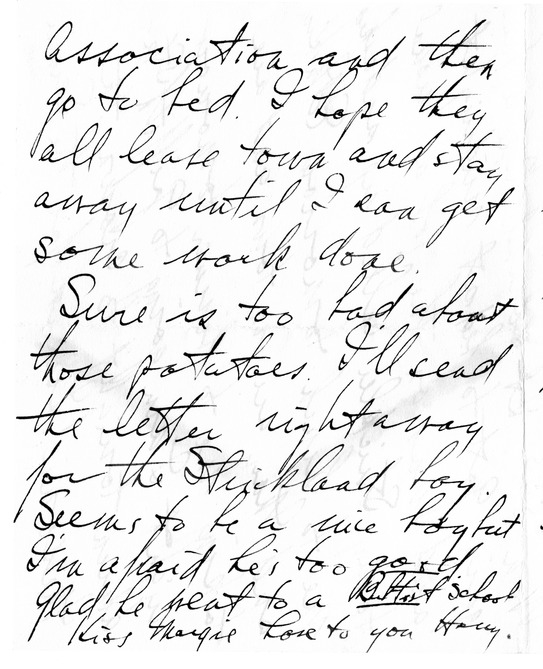 Association and then
go to bed. I hope they
all leave town and stay
away until I can get
some work done.
Sure is too bad about
those potatoes. I'll send
the letter right away
for the Strickland boy.
Seems to be a nice boy but
I'm afraid he's too good
Glad he went to a Baptist school
Kiss Margie Love to you Harry.